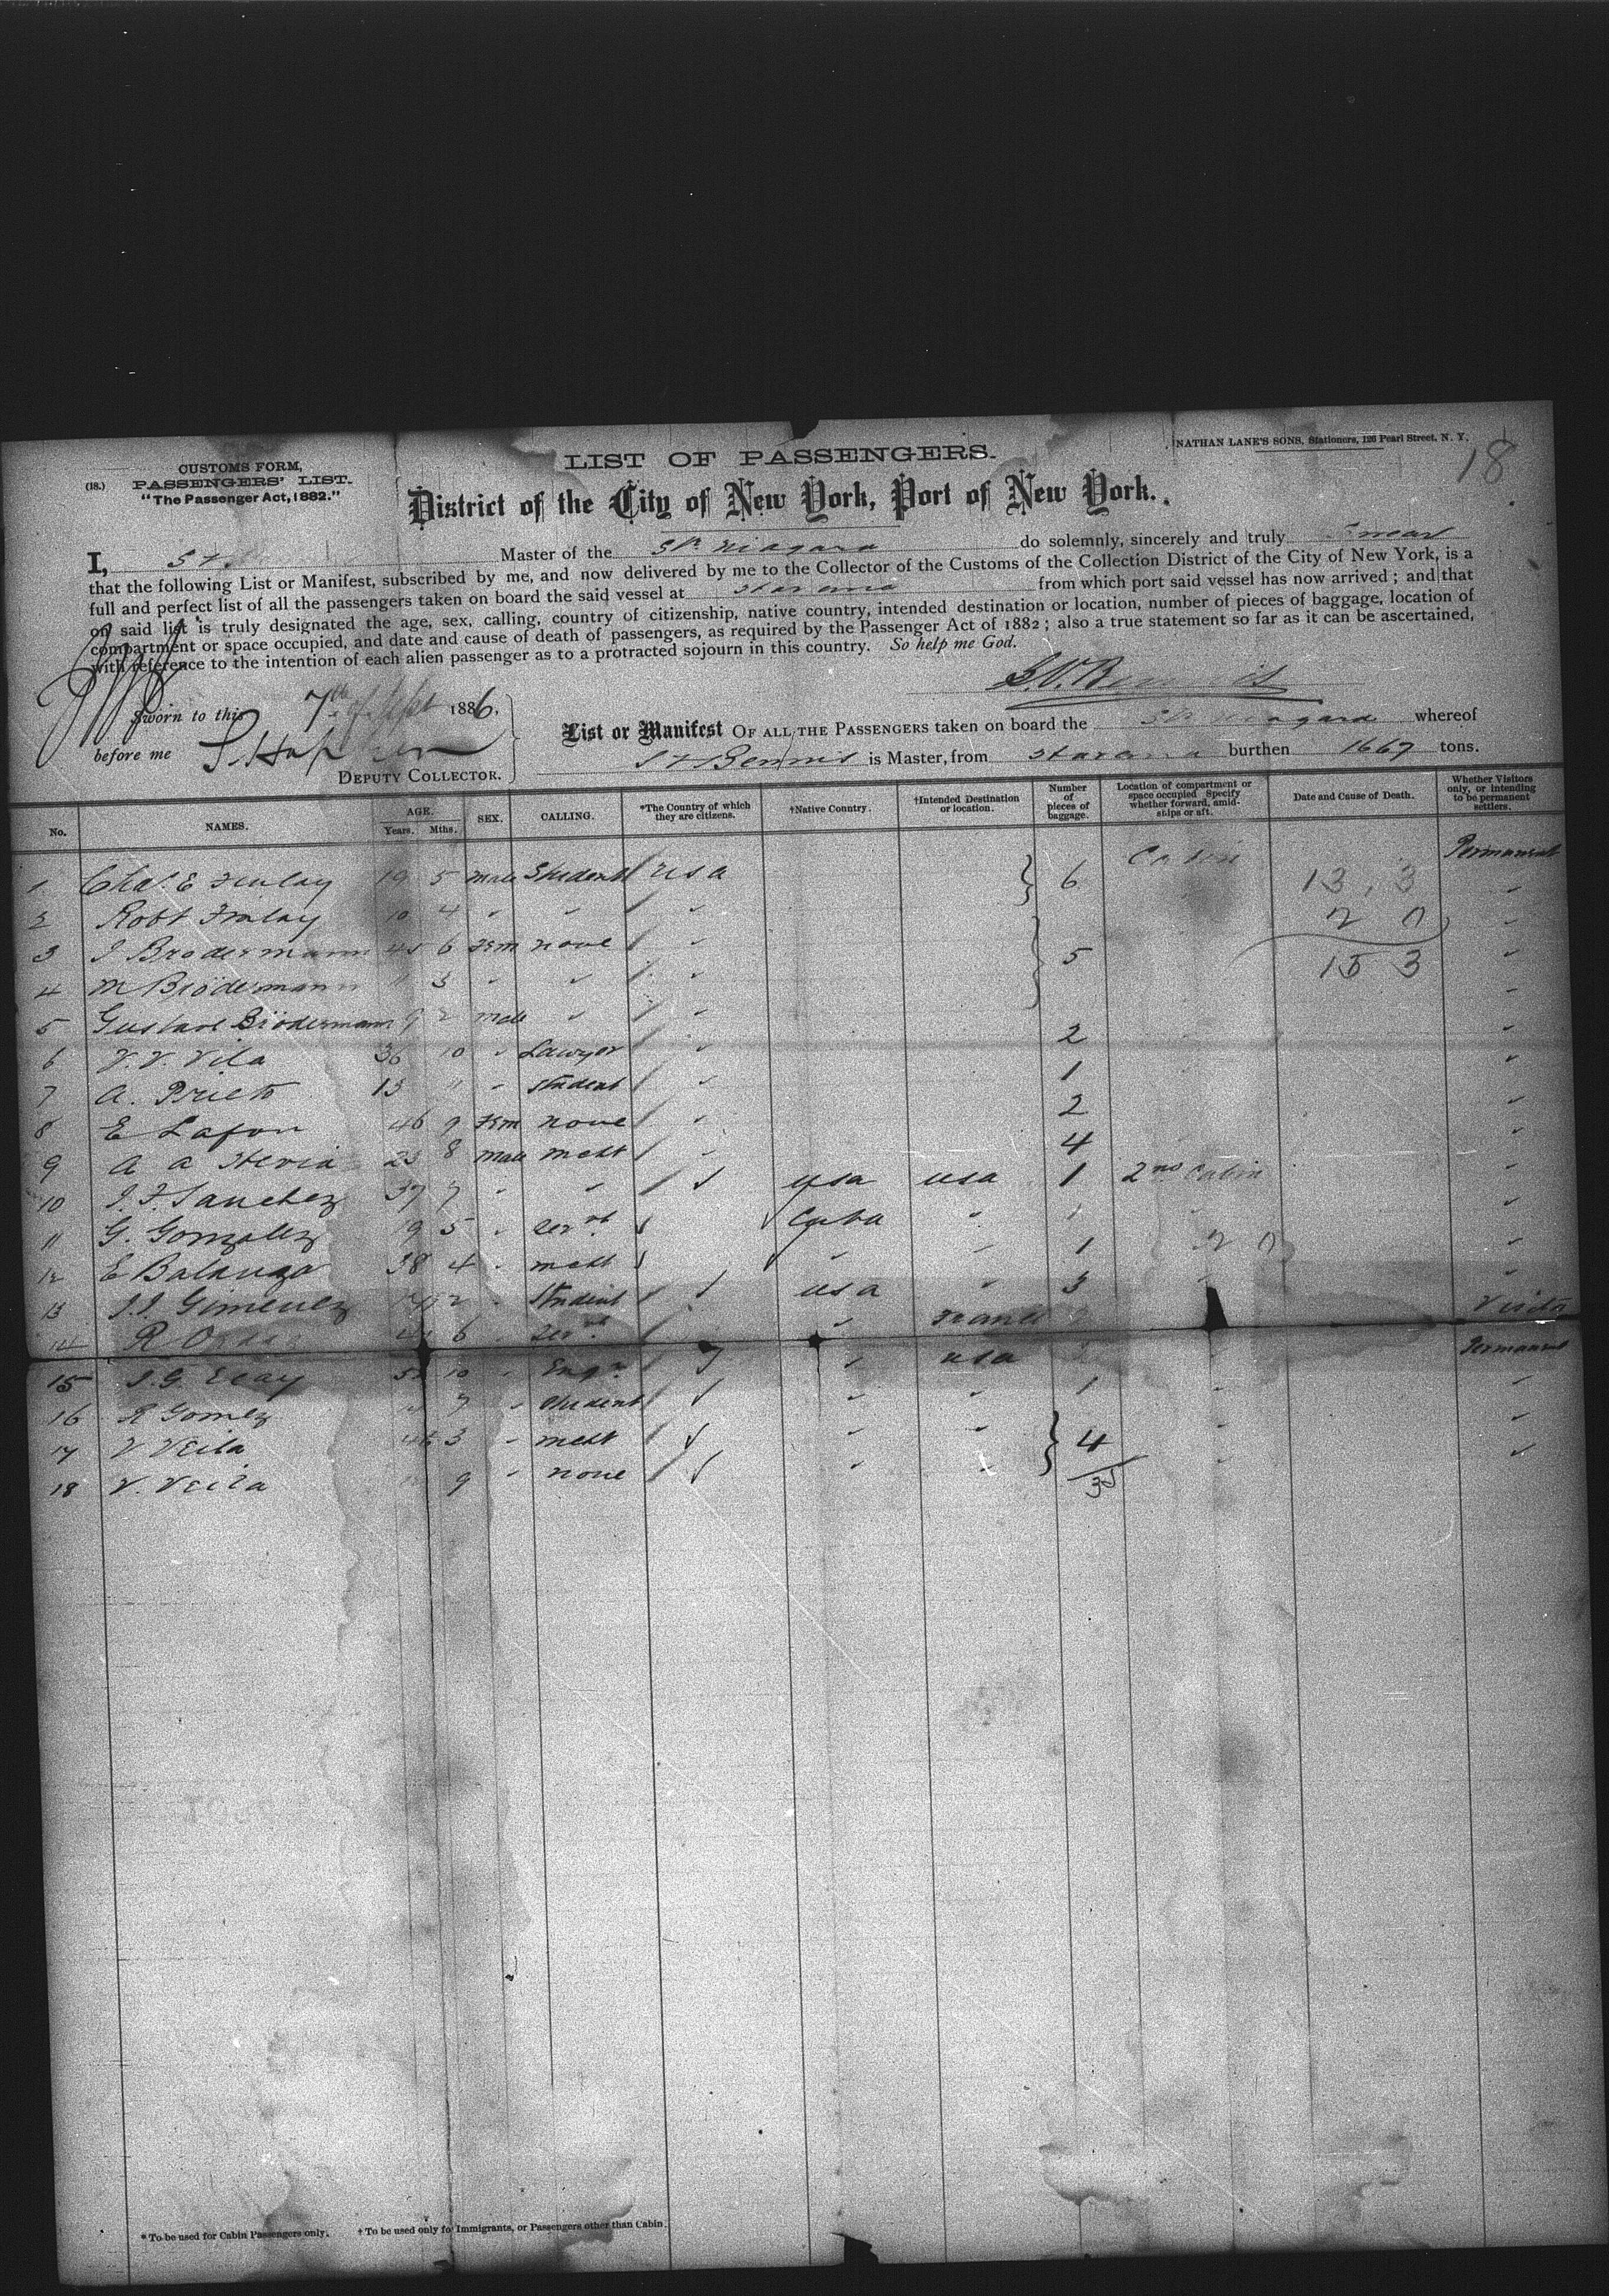 NATHAN LANE'S SONS, Stationers, 126 Pearl Street, N. Y.
18
CUSTOMS FORM,
(18.) PASSENGERS' LIST.
"The Passenger Act, 1882."
LIST OF PASSENGERS.
District of the City of New York, Port of New York.
I, Master of the Str Niagara do solemnly, sincerely and truly Swear
that the following List or Manifest, subscribed by me, and now delivered by me to the Collector of the Customs of the Collection District of the City of New York, is a
full and perfect list of all the passengers taken on board the said vessel at Havana from which port said vessel has now arrived ; and that
on said list is truly designated the age, sex, calling, country of citizenship, native country, intended destination or location, number of pieces of baggage, location of
compartment or space occupied, and date and cause of death of passengers, as required by the Passenger Act of 1882 ; also a true statement so far as it can be ascertained,
with reference to the intention of each alien passenger as to a protracted sojourn in this country. So help me God.
Sworn to this 7th of Sept 1886,
before me
DEPUTY COLLECTOR.
List or Manifest OF ALL THE PASSENGERS taken on board the Str Niagara whereof
Bennis is Master, from Havana burthen 1667 tons.
No. NAMES. AGE. Years. Mths. SEX. CALLING. *The Country of which they are citizens. †Native Country. †Intended Destination or location. Number of pieces of baggage. Location of compartment or space occupied Specify whether forward, amidships or aft. Date and Cause of Death. Whether Visitors only, or intending to be permanent settlers.
1 Chas. E Finlay 19 5 male Student USA 6 Cabin 13, 3 Permanent
2 Robt Finlay 10 4 " " " 2 0 "
3 J Brodermann 6 Fem none " 5 15 3 "
4 M Brodermann 11 3 " " " "
5 Gustave Brodermann 9 2 male " " "
6 V. V. Vila 36 10 " Lawyer " 2 "
7 A. Prieto 13 11 " Student " 1 "
8 E Lafon 46 9 Fem none " 2 "
9 A A Hevia 23 8 male mcht " 4 "
10 J. F. Sanchez 37 7 " " USA USA 1 2nd Cabin "
11 G. Gonzalez 19 5 " Servt Cuba " 1 " "
12 E Balanzo 38 4 " mcht " " 1 2 0 "
13 J. J. Gimenez 2 " Student USA " 3 " "
14 R 6 " Servt " France Visitor
15 J. G. Ecay 10 " Engr " USA " Permanent
16 R Gomez 7 " Student " " 1 " "
17 V Veila 3 " mcht " " 4 " "
18 V. Veila 9 " none " " " "
35
* To be used for Cabin Passengers only. † To be used only for Immigrants, or Passengers other than Cabin.